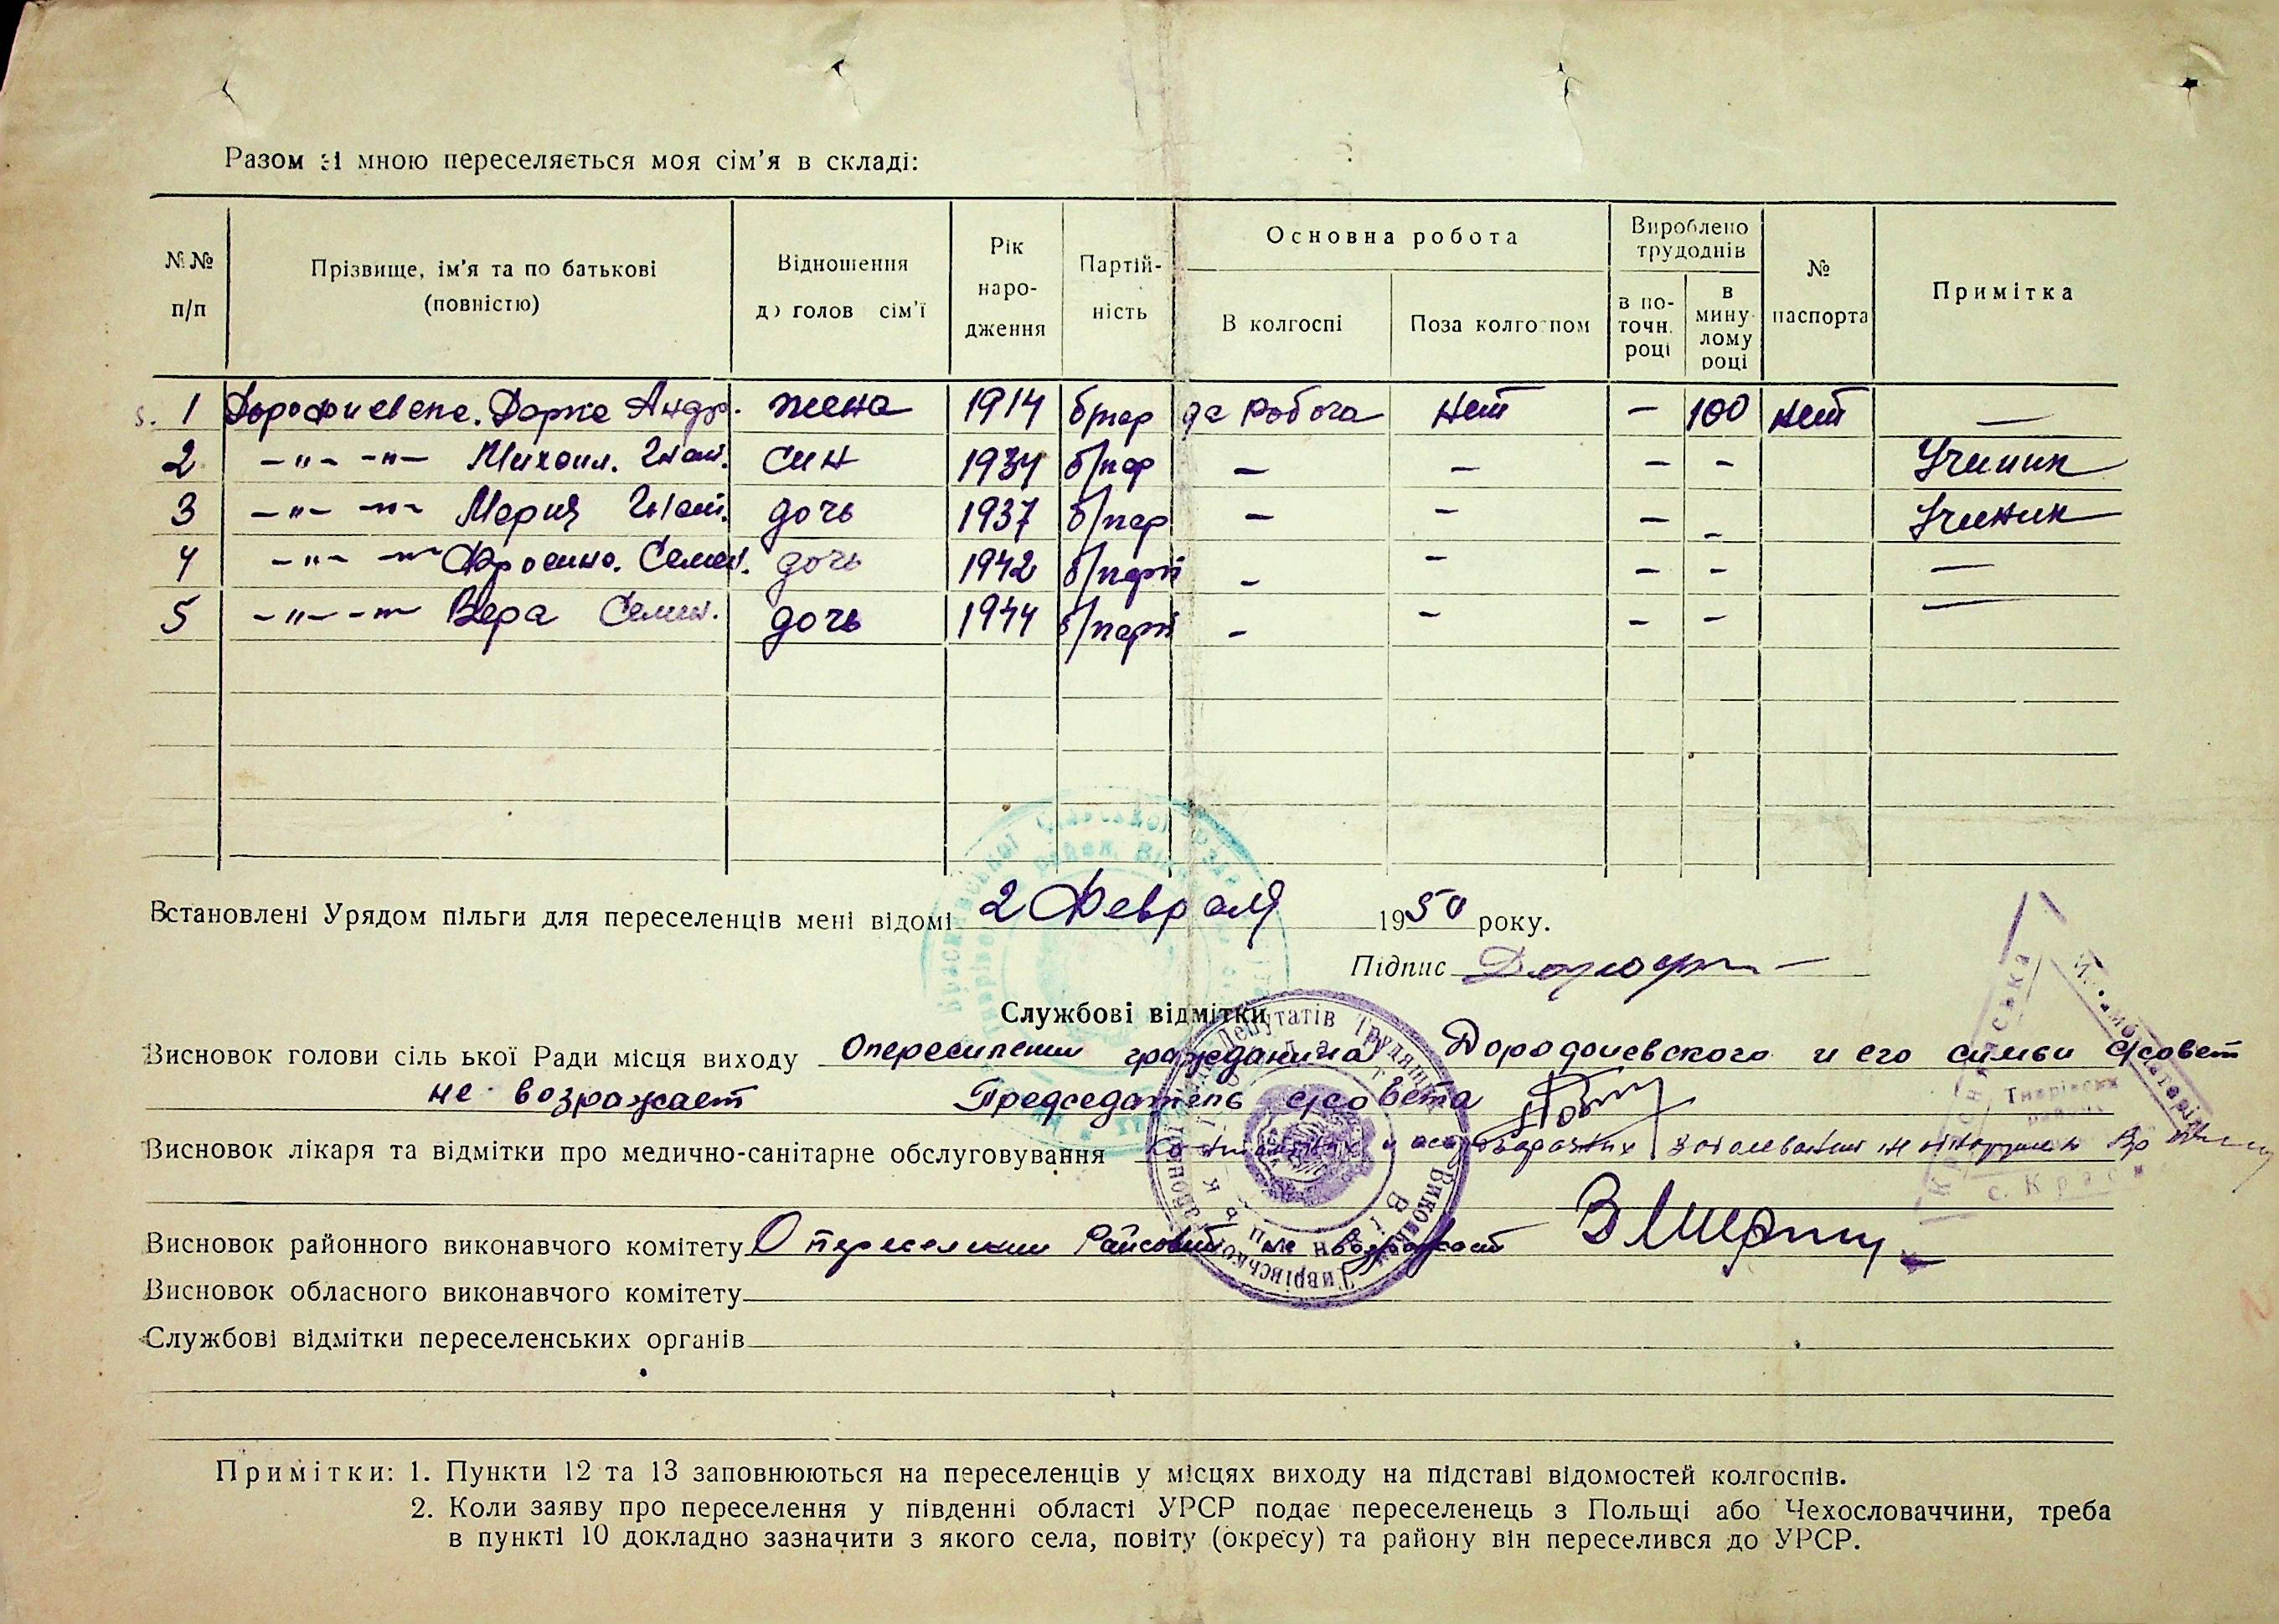 Разом зі мною переселяється моя сім'я в складі:
№№ п/п Прізвище, ім'я та по батькові (повністю) Відношення до голов сім'ї Рік народження Партійність Основна робота В колгоспі Поза колгоспом Вироблено трудоднів в поточн. році в минулому році № паспорта Примітка
1 Дарка Андр. жена 1914 б/пар да робота нет – 100 нет —
2 –"– –"– Михаил. Игнат. син 1934 б/пар – – – – Ученик
3 –"– –"– Мария Игнат. дочь 1937 б/пар – – – – Ученик
4 –"– –"– Фросина. Семен. дочь 1942 б/парт – – – – —
5 –"– –"– Вера Семен. дочь 1944 б/парт – – – – —
Встановлені Урядом пільги для переселенців мені відомі 2 Февраля 1950 року.
Підпис
Службові відмітки
Висновок голови сільської Ради місця виходу О переселении гражданина и его симьи с/совет
не возражает Председатель с/совета
Висновок лікаря та відмітки про медично-санітарне обслуговування заболеваний не обнаружено
Висновок районного виконавчого комітету О переселении Райсовет не возражает
Висновок обласного виконавчого комітету
Службові відмітки переселенських органів
Примітки: 1. Пункти 12 та 13 заповнюються на переселенців у місцях виходу на підставі відомостей колгоспів.
2. Коли заяву про переселення у південні області УРСР подає переселенець з Польщі або Чехословаччини, треба
в пункті 10 докладно зазначити з якого села, повіту (округу) та району він переселився до УРСР.